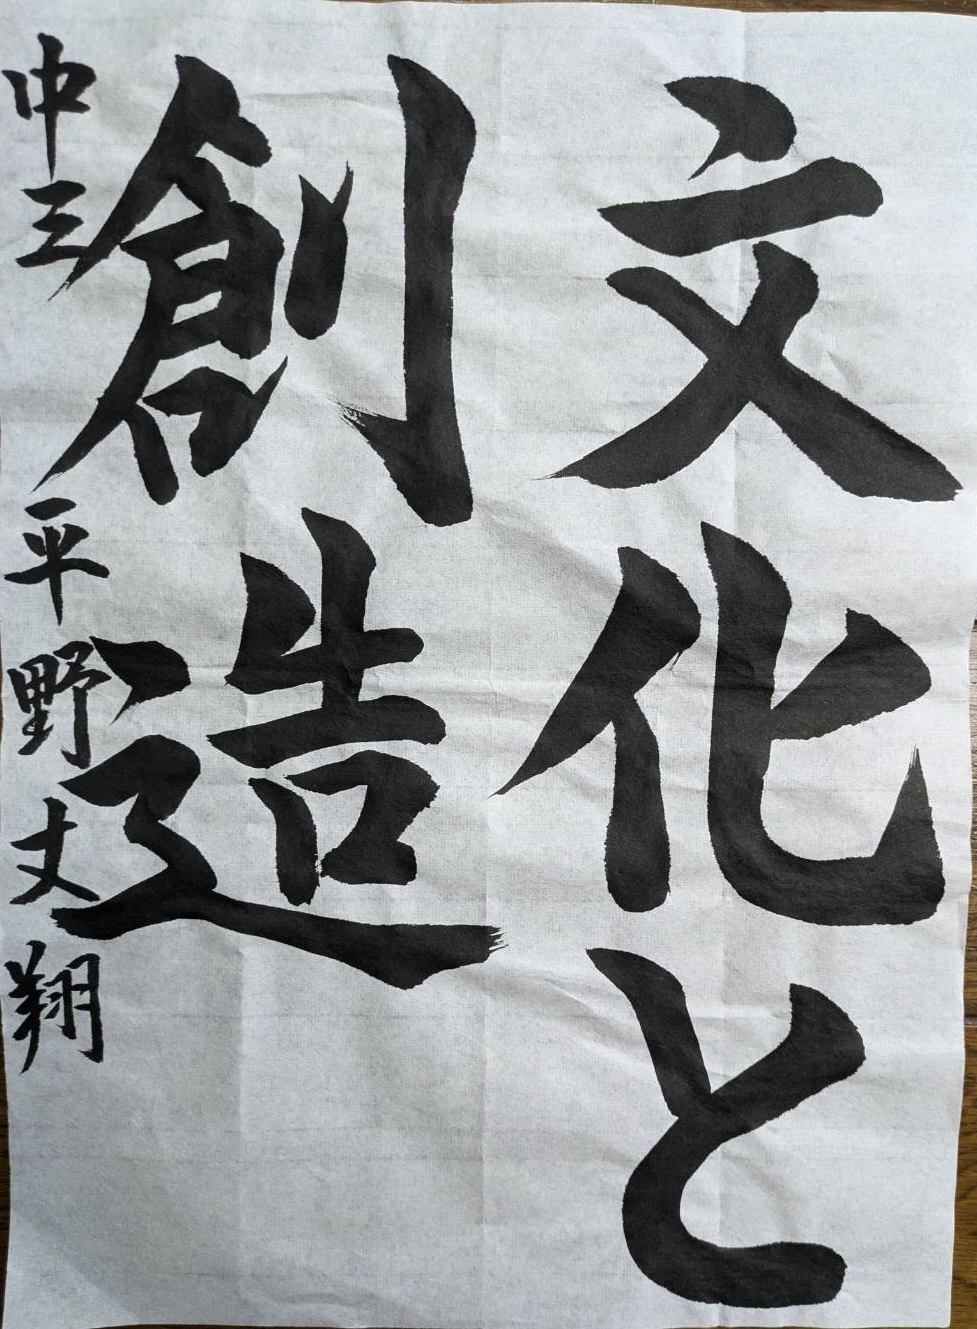 文化と
創造
中三 平野丈翔